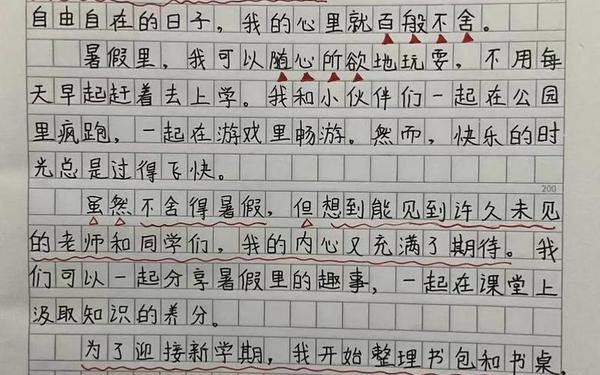 自由自在的日子，我的心里就百般不舍。
暑假里，我可以随心所欲地玩耍，不用每
天早起赶着去上学。我和小伙伴们一起在公园
里疯跑，一起在游戏里畅游。然而，快乐的时
光总是过得飞快。
200
虽然不舍得暑假，但想到能见到许久未见
的老师和同学们，我的内心又充满了期待。我
们可以一起分享暑假里的趣事，一起在课堂上
汲取知识的养分。
为了迎接新学期，我开始整理书包和书桌，